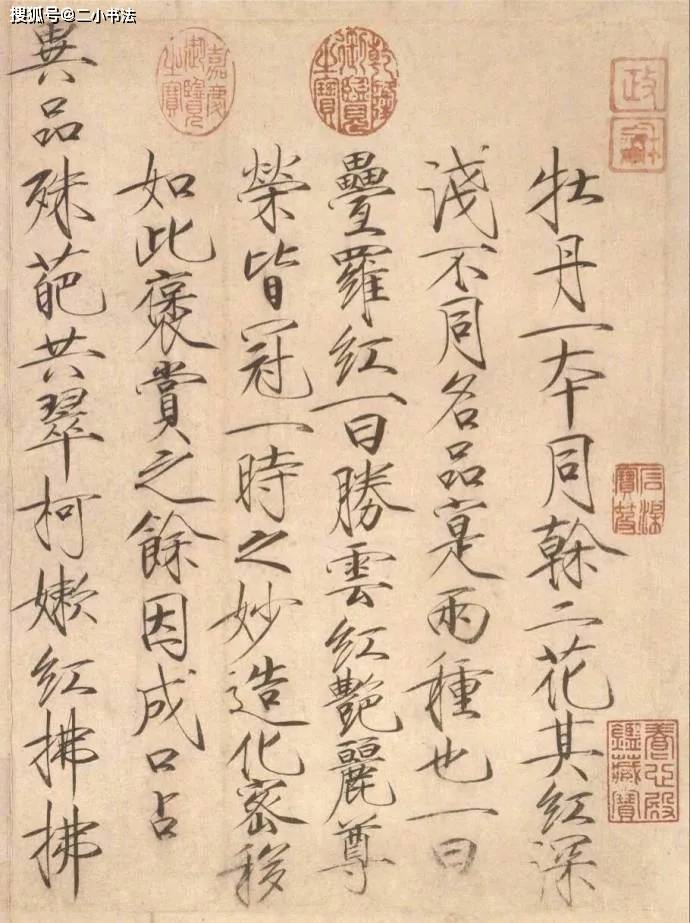 搜狐号@二小书法
牡丹一本同幹二花其紅深
淺不同名品寔兩種也一曰
疊羅紅一曰勝雲紅艷麗尊
榮皆冠一時之妙造化密移
如此褒賞之餘因成口占
異品殊葩共翠柯嫩紅拂拂
乾隆御覽之寶
嘉慶御覽之寶
政龢
石渠寶笈
養心殿鑑藏寶